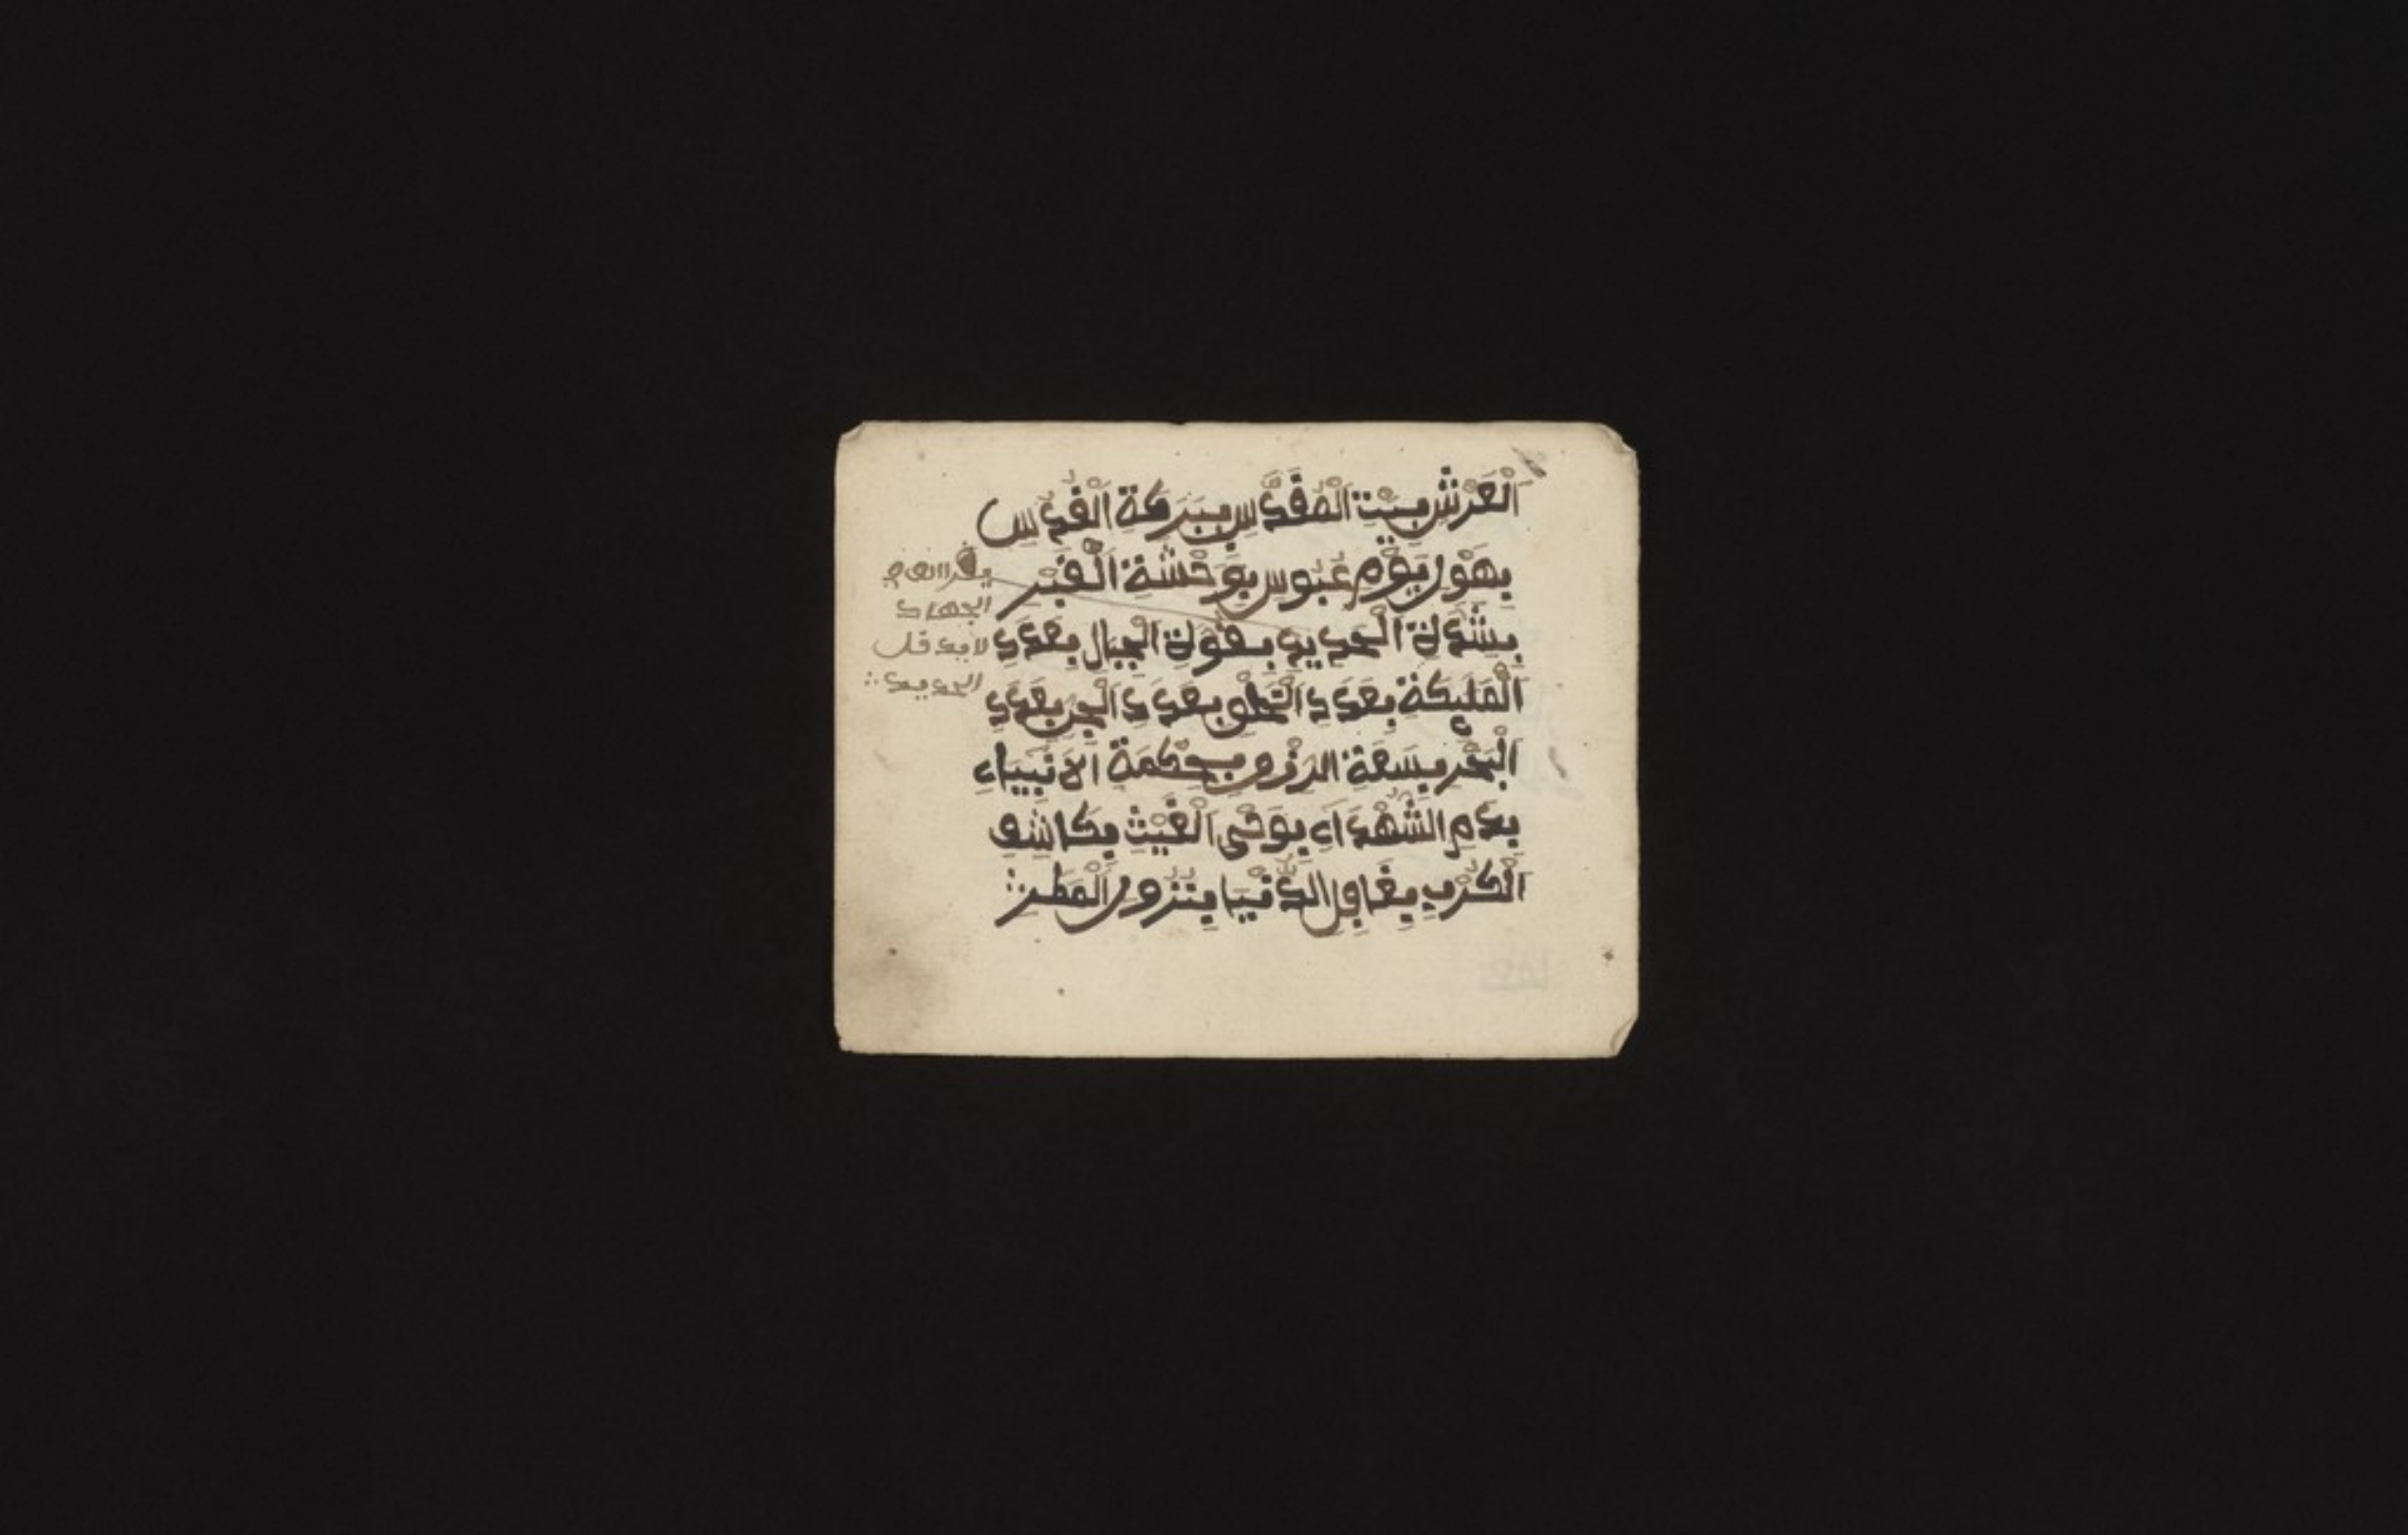 اَلْعَرْشِ بِبَيْتِ الْمُقَدَّسِ بِبَرَكَةِ الْقُدُسِ
بِهَوْلِ يَوْمٍ عَبُوسٍ بِوَحْشَةِ الْقَبْرِ
بِشِدَّةِ الْحَدِيدِ بِقُوَّةِ الْجِبَالِ بِعَدَدِ
الْمَلٰئِكَةِ بِعَدَدِ الْخَلْقِ بِعَدَدِ الْجِنِّ بِعَدَدِ
الْبَحْرِ بِسَعَةِ الرِّزْقِ بِحِكْمَةِ الْاَنْبِيَاءِ
بِدَمِ الشُّهَدَاءِ بِوَحْيِ الْغَيْثِ بِكَاشِفِ
الْكُرْبِ بِغَافِلِ الدُّنْيَا بِنُزُولِ الْمَطَرِ
الجهاد
لا بد قل
الحديد